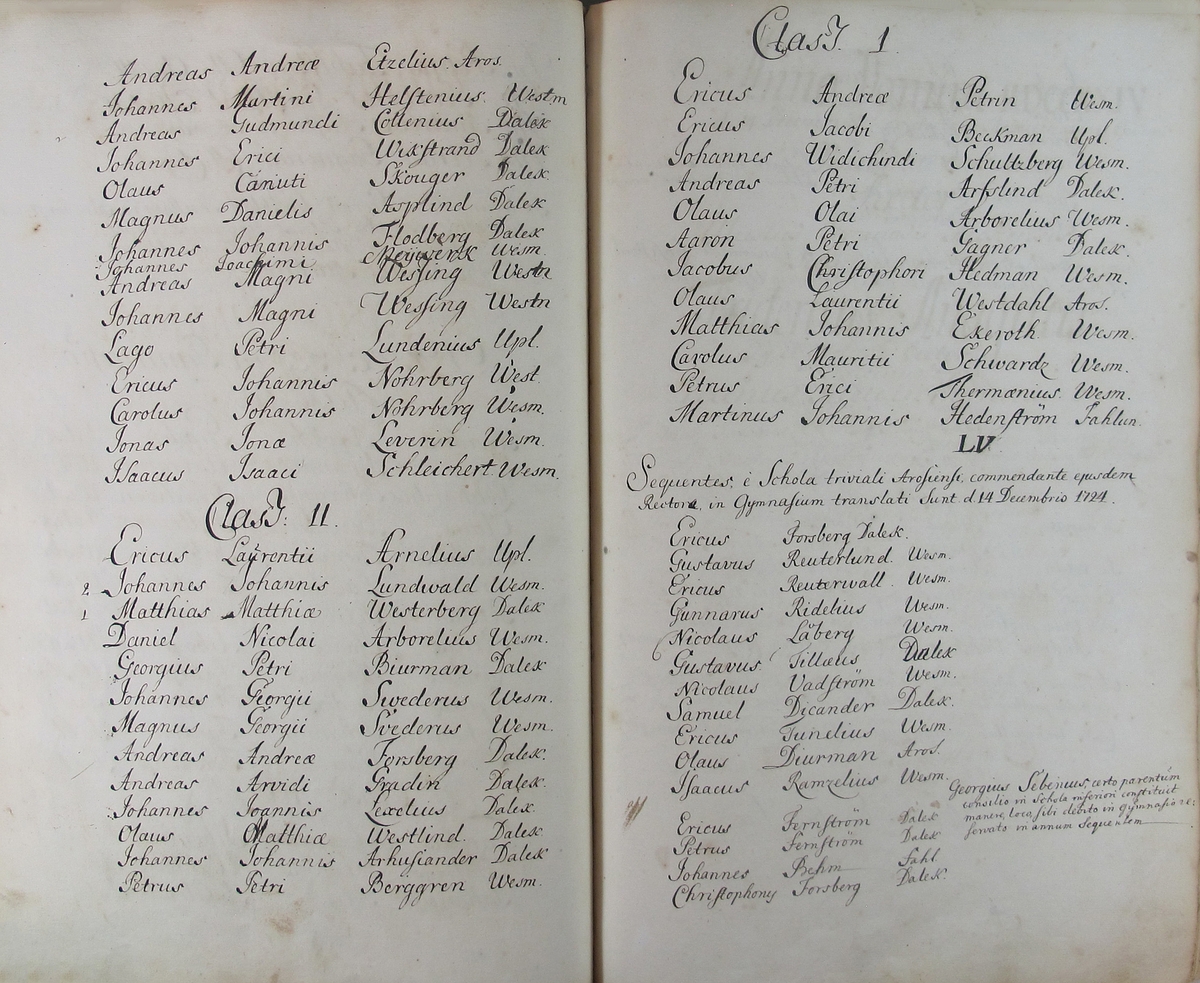 Andreas Andreæ Etzelius. Aros.
Johannes Martini Helstenius. Westm
Andreas Gudmundi Collenius Dalek
Johannes Erici Wikstrand Dalek
Olaus Canuti Skouger Dalek
Magnus Danielis Asplind Dalek
Johannes Johannis Flodberg Dalek
Johannes Joachimi Wesm.
Andreas Magni Wessing Westn
Johannes Magni Wessing Westn
Lago Petri Lundenius Upl.
Ericus Johannis Nohrberg West.
Carolus Johannis Nohrberg Wesm.
Jonas Jonæ Leverin Wesm.
Isaacus Isaaci Schleichert Wesm.
Class: II.
Ericus Laurentii Arnelius Upl.
2 Johannes Johannis Lundwald Wesm.
1 Matthias Matthiæ Westerberg Dalek
Daniel Nicolai Arborelius Wesm.
Georgius Petri Biurman Dalek
Johannes Georgii Swederus Wesm.
Magnus Georgii Svederus Wesm.
Andreas Andreæ Forsberg Dalek.
Andreas Arvidi Gradin Dalek.
Johannes Joannis Lexelius Dalek.
Olaus Matthiæ Westlind. Dalek
Johannes Johannis Arhusiander Dalek
Petrus Petri Berggren Wesm.
Class. I.
Ericus Andreæ Petrin Wesm.
Ericus Jacobi Beckman Upl.
Johannes Widichindi Schultzberg Wesm.
Andreas Petri Arfslind Dalek.
Olaus Olai Arborelius Wesm.
Aaron Petri Gagner Dalek.
Jacobus Christophori Hedman Wesm.
Olaus Laurentii Westdahl Aros.
Matthias Johannis Ekeroth Wesm.
Carolus Mauritii Schwardz Wesm.
Petrus Erici Thermænius. Wesm.
Martinus Johannis Hedenström Fahlun.
LV
Sequentes, è Schola triviali Arosiensi, commendante ejusdem
Rectore, in Gymnasium translati Sunt d 14 Decembris 1724.
Ericus Forsberg Dalek.
Gustavus Reuterlund. Wesm.
Ericus Reuterwall. Wesm.
Gunnarus Ridelius Wesm.
Nicolaus Låberg Wesm.
Gustavus Tillæus Dalek
Nicolaus Vadström Wesm.
Samuel Dicander Dalek.
Ericus Tunelius Wesm.
Olaus Diurman Aros.
Isaacus Ramzelius Wesm.
Georgius Sebenius, certo parentum
consilio in Schola inferiori constituit
manere, loco sibi debito in gymnasio re:
servato in annum Sequentem
Ericus Fernström Dalek
Petrus Fernström Dalek
Johannes Behm Fahl
Christophorus Forsberg Dalek.